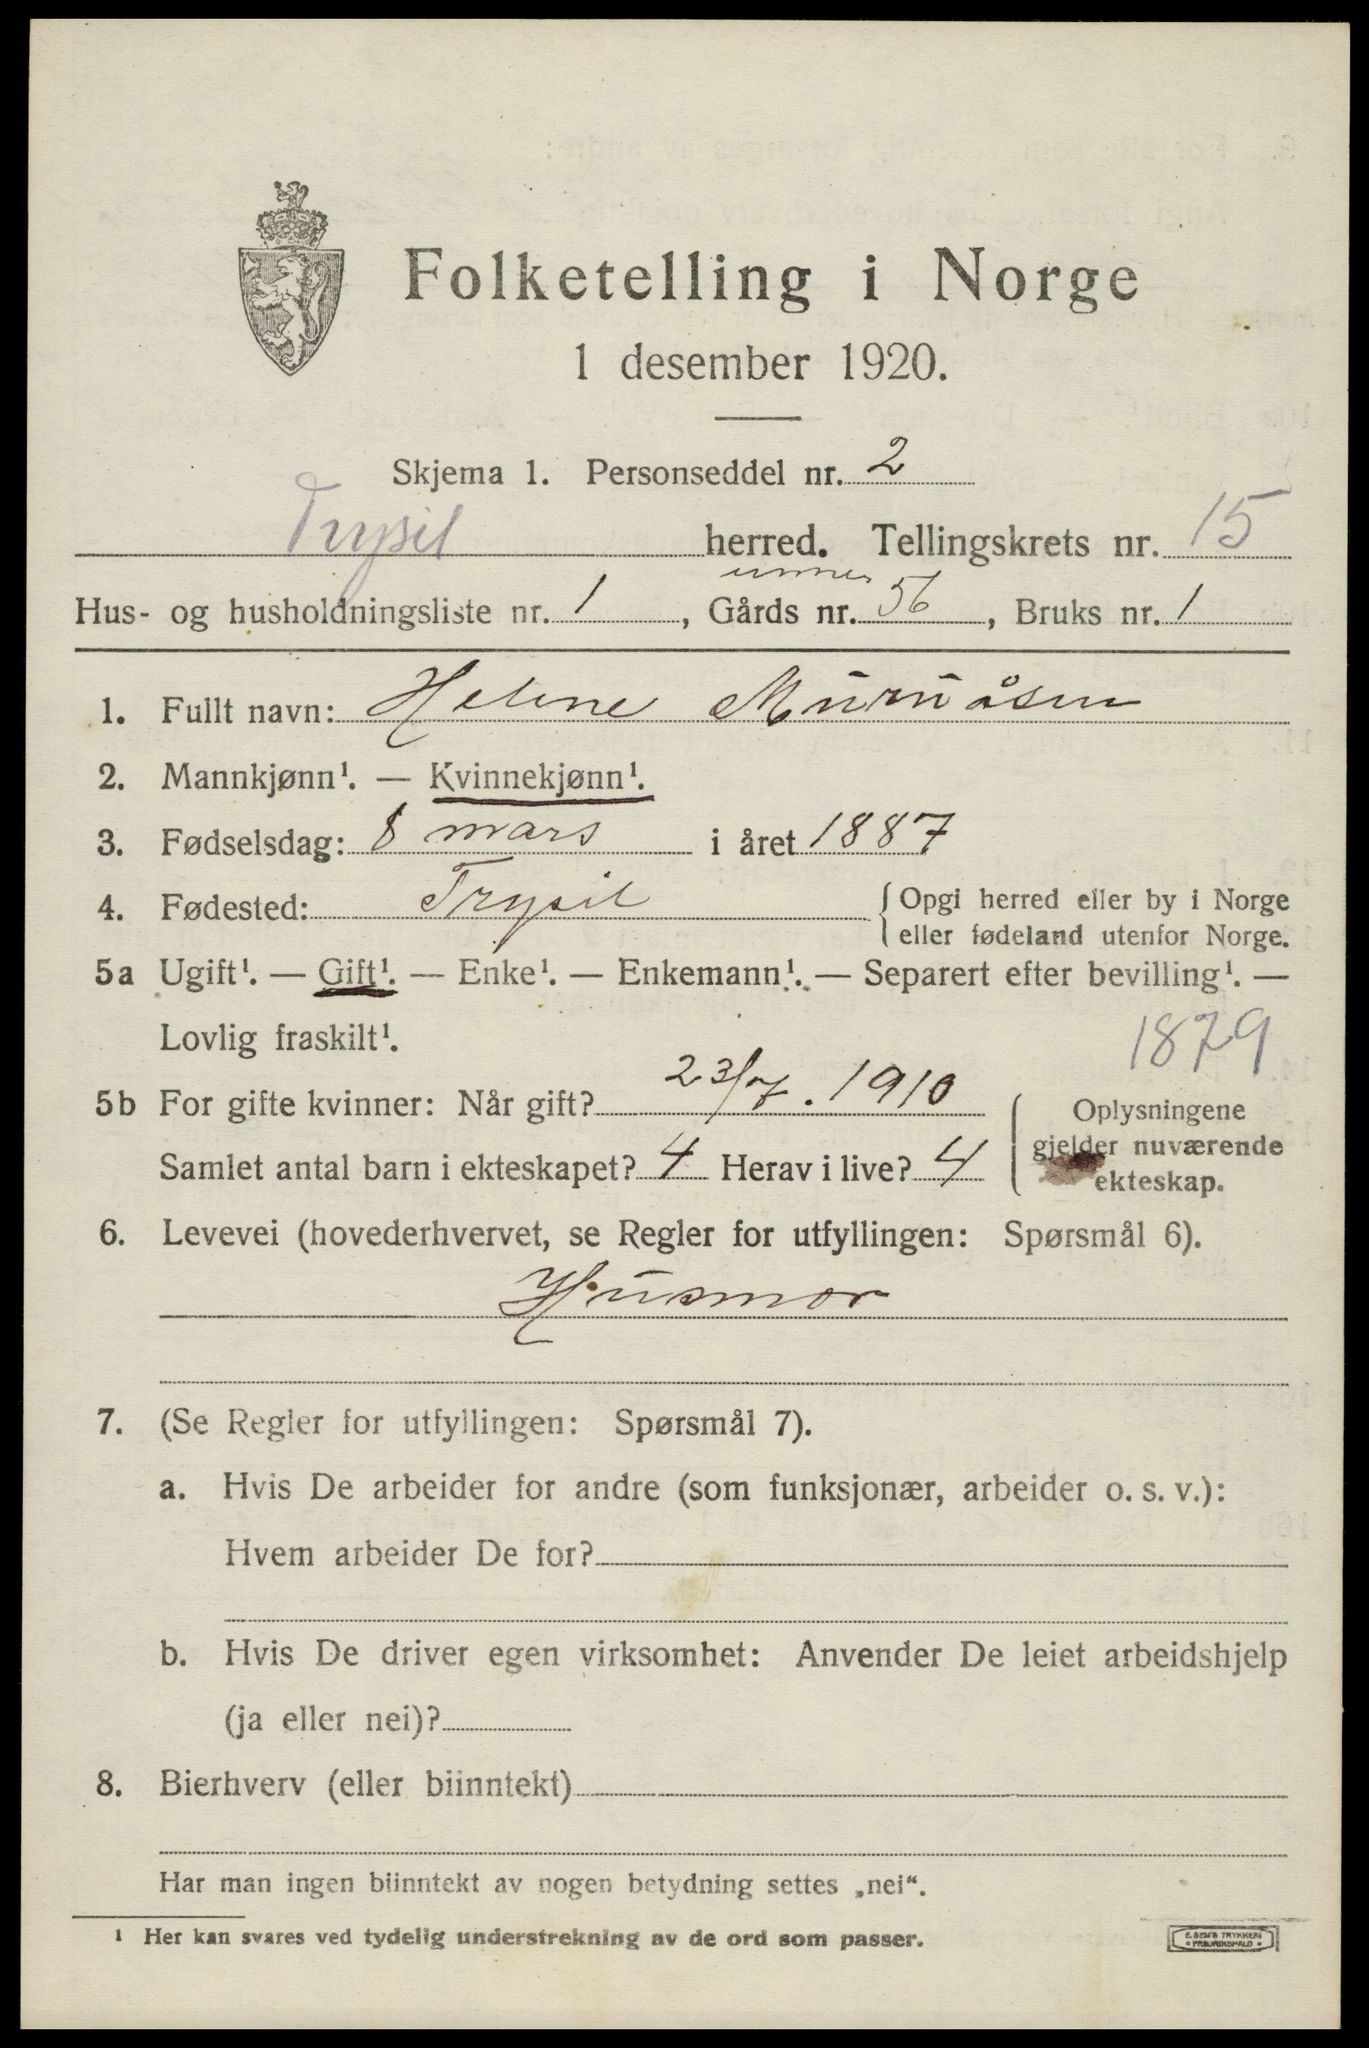 Folketelling i Norge
1 desember 1920.
Skjema 1. Personseddel nr. 2
Trysil herred. Tellingskrets nr. 15
Hus- og husholdningsliste nr. 1, Gårds nr. 56, Bruks nr. 1
1. Fullt navn: Helene Muruåsen
2. Mannkjønn¹. — Kvinnekjønn¹.
3. Fødselsdag: 8 mars i året 1887
4. Fødested: Trysil {Opgi herred eller by i Norge
eller fødeland utenfor Norge.
5a Ugift¹. — Gift¹. — Enke¹. — Enkemann¹. — Separert efter bevilling¹. —
Lovlig fraskilt¹.
1879
5b For gifte kvinner: Når gift? 23/7. 1910
Samlet antal barn i ekteskapet? 4 Herav i live? 4
{Oplysningene
gjelder nuværende
ekteskap.
6. Levevei (hovederhvervet, se Regler for utfyllingen: Spørsmål 6).
Husmor
7. (Se Regler for utfyllingen: Spørsmål 7).
a. Hvis De arbeider for andre (som funksjonær, arbeider o. s. v.):
Hvem arbeider De for?
b. Hvis De driver egen virksomhet: Anvender De leiet arbeidshjelp
(ja eller nei)?
8. Bierhverv (eller biinntekt)
Har man ingen biinntekt av nogen betydning settes „nei“.
¹ Her kan svares ved tydelig understrekning av de ord som passer.
E. SEM'S TRYKKERI
• FREDRIKSHALD •